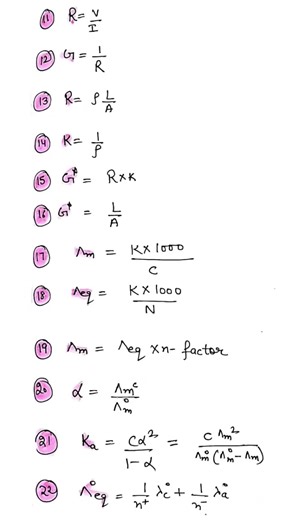 11 R = V/I
12 G = 1/R
13 R = ρ L/A
14 K = 1/ρ
15 G* = R×K
16 G* = L/A
17 Λm = K×1000/C
18 Λeq = K×1000/N
19 Λm = Λeq × n-factor
20 α = Λm^c/Λm°
21 Ka = Cα²/1-α = CΛm²/Λm°(Λm°-Λm)
22 Λ°eq = 1/n+ λ°c + 1/n- λ°a